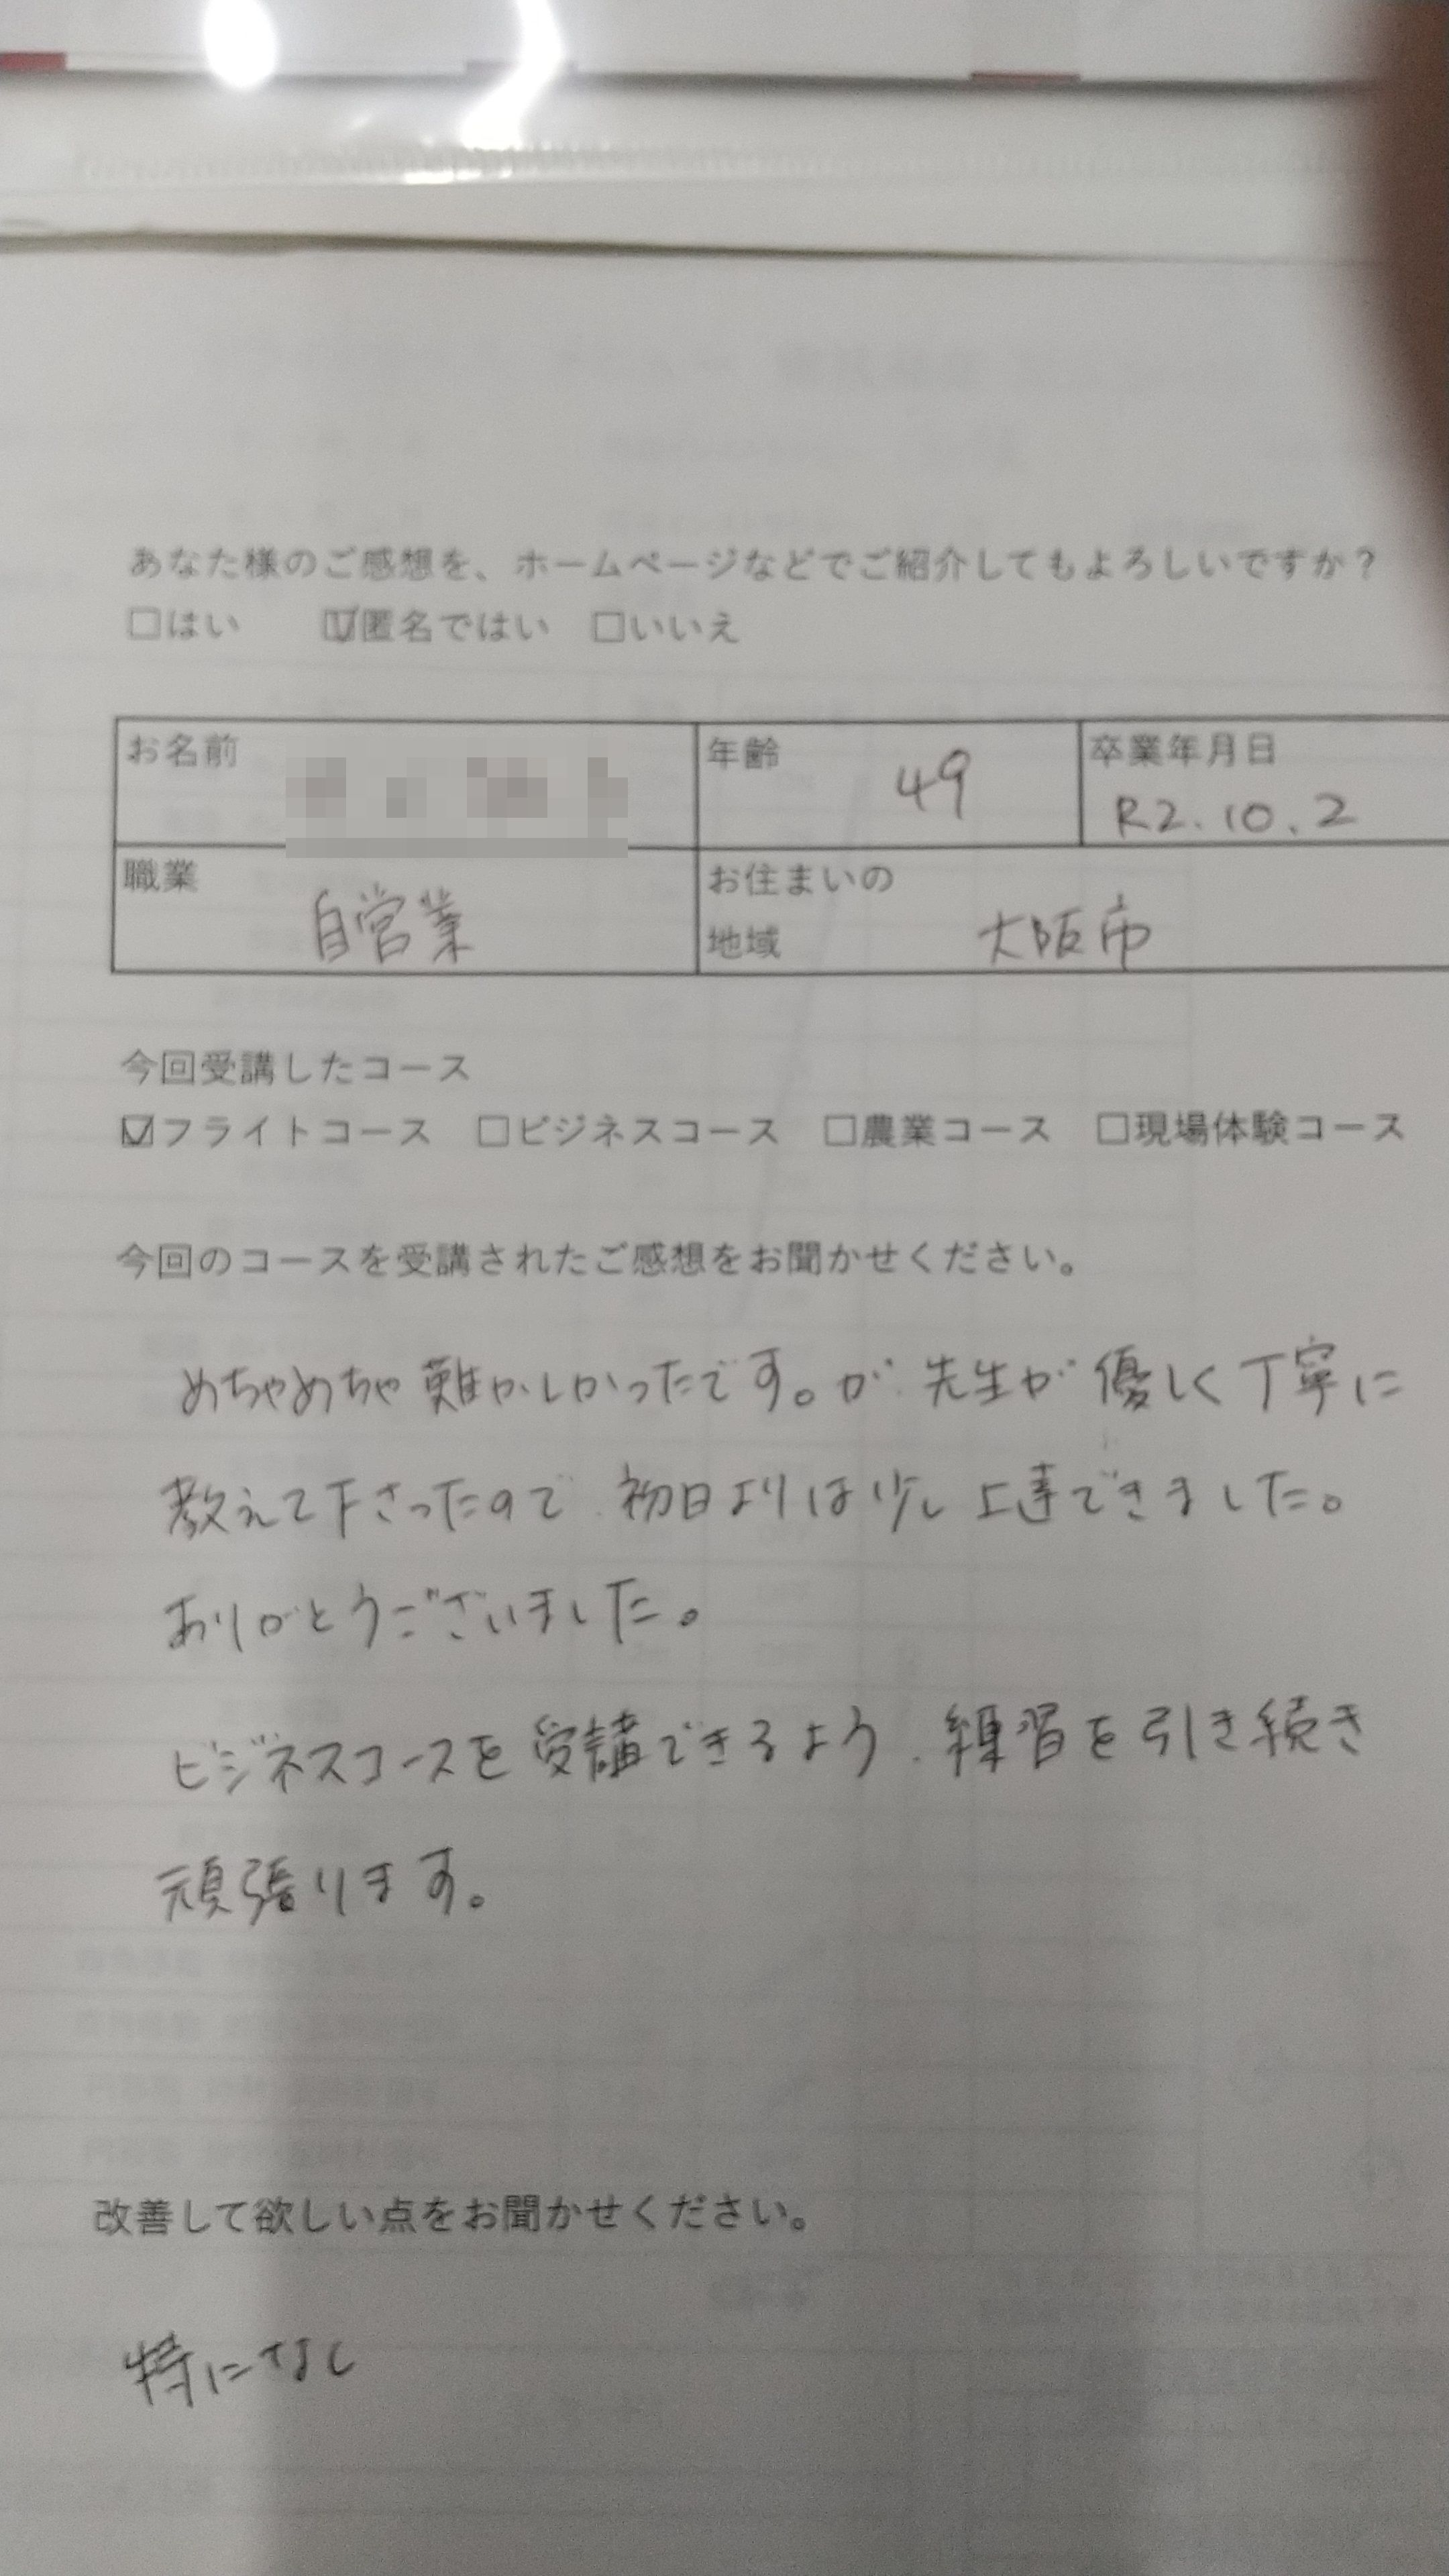 あなた様のご感想を、ホームページなどでご紹介してもよろしいですか？
□はい ☑匿名ではい □いいえ
お名前 年齢 49 卒業年月日 R2.10.2
職業 自営業 お住まいの地域 大阪市
今回受講したコース
☑フライトコース □ビジネスコース □農業コース □現場体験コース
今回のコースを受講されたご感想をお聞かせください。
めちゃめちゃ難かしかったです。が、先生が優しく丁寧に
教えて下さったので、初日よりは少し上達できました。
ありがとうございました。
ビジネスコースを受講できるよう、練習を引き続き
頑張ります。
改善して欲しい点をお聞かせください。
特になし